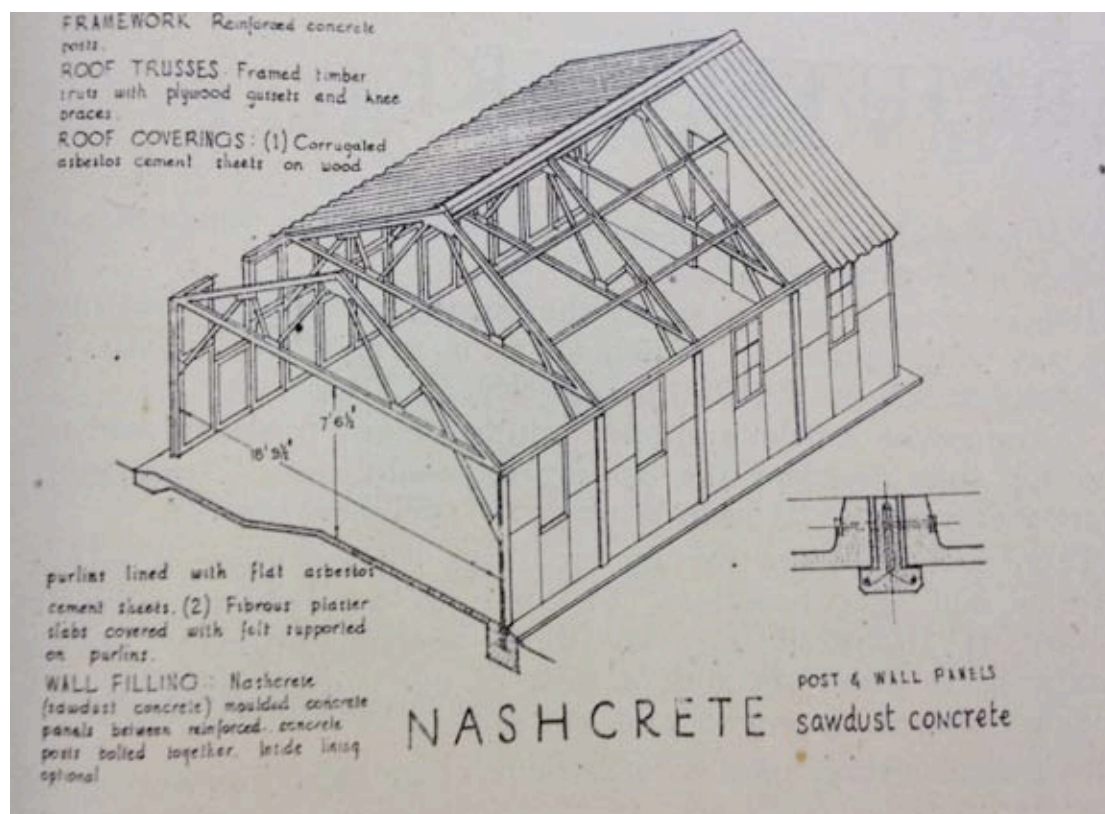 FRAMEWORK Reinforced concrete
posts.
ROOF TRUSSES. Framed timber
truts with plywood gussets and knee
braces.
ROOF COVERINGS: (1) Corrugated
asbestos cement sheets on wood
purlins lined with flat asbestos
cement sheets. (2) Fibrous plaster
slabs covered with felt supported
on purlins.
WALL FILLING: Nashcrete
(sawdust concrete) moulded concrete
panels between reinforced concrete
posts bolted together. Inside lining
optional
7' 6½"
18' 9½"
NASHCRETE
POST & WALL PANELS
sawdust concrete